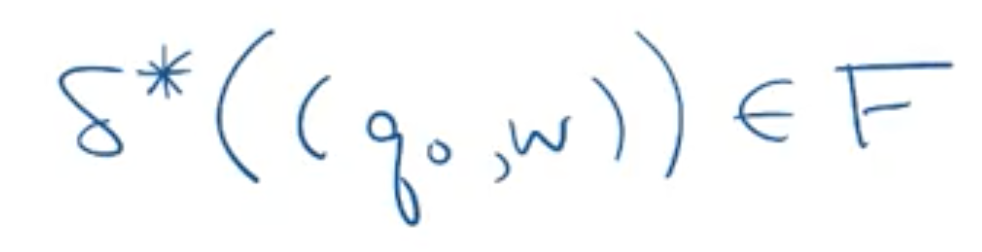 δ*((q₀,w)) ∈ F